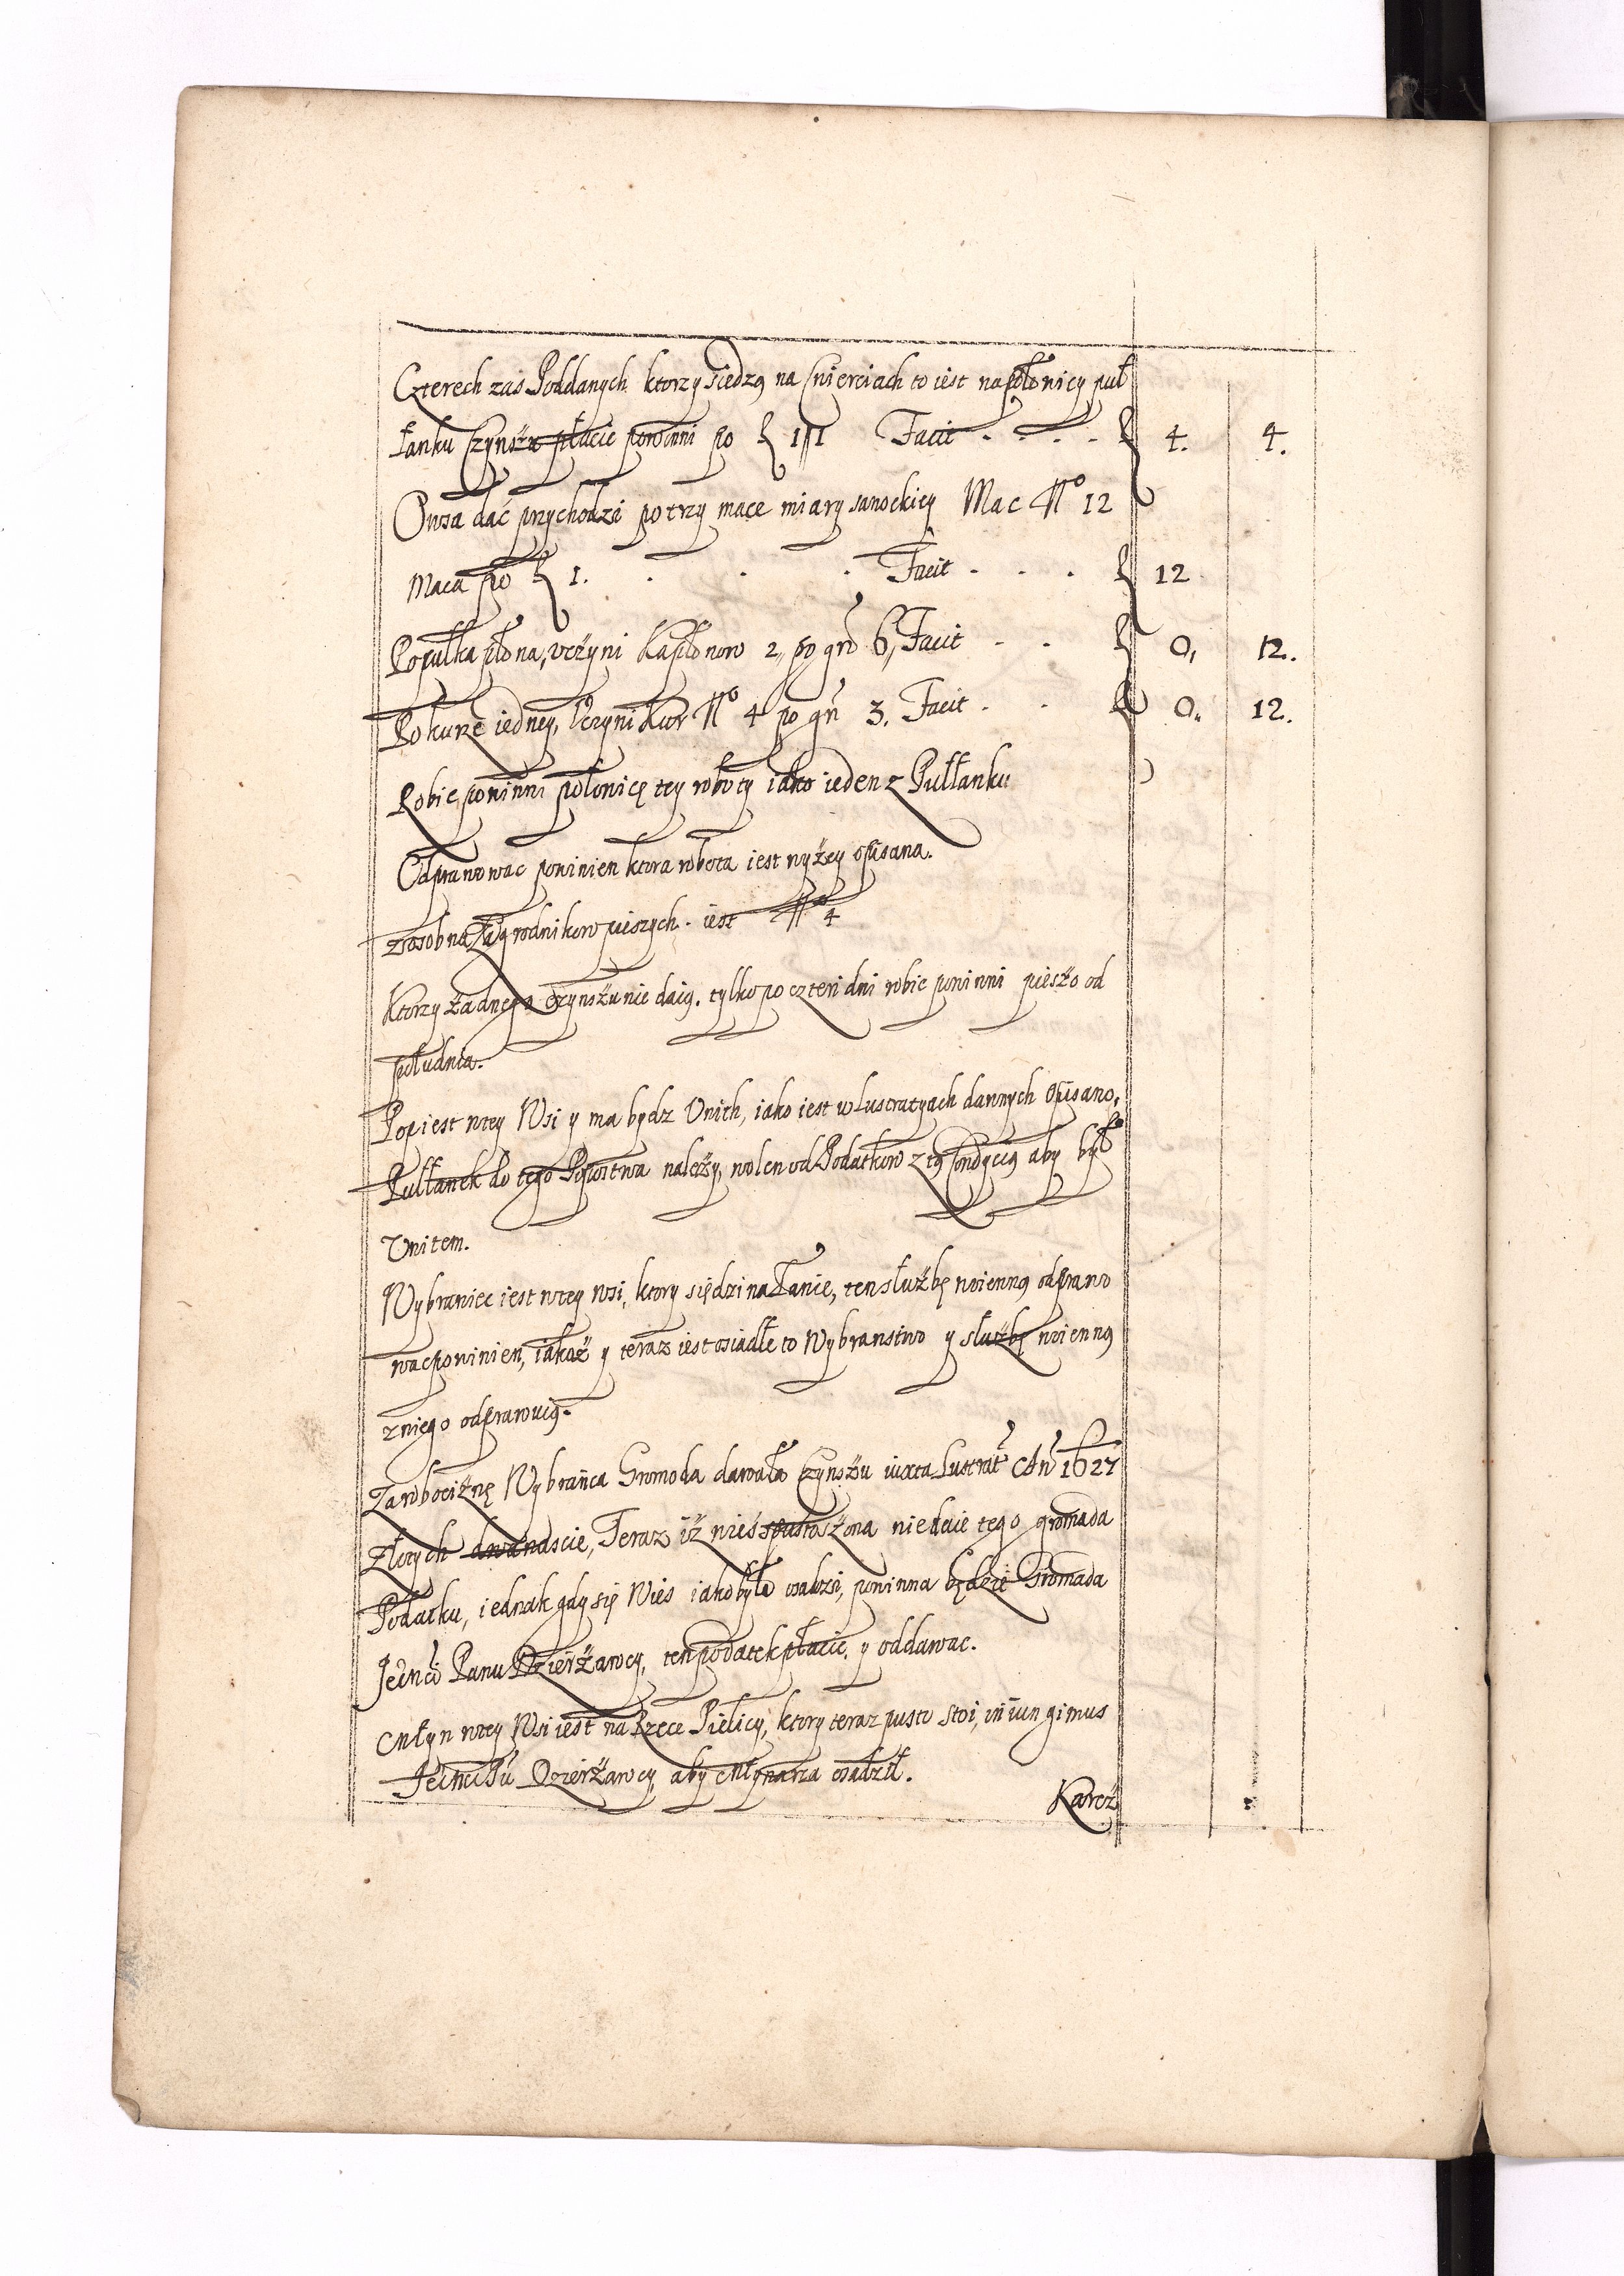 Czterech zaś Poddanych ktorzy siedzą na Cwierciach to iest na połowicy puł
łanku Czynszu płacic powinni po ƶ 1//1 Facit . . . . ƶ 4. 4.
Owsa dać przychodzi po trzy mace miary sanockiey Mac Nº 12
Maca po ƶ 1. . . . Facit . . . ƶ 12
Po pułkapłona, uczyni Kapłonow 2,, po gro 6,, Facit . . ƶ 0, 12.
Po kurze iedney, Uczyni Kur Nº 4 po gr 3. Facit . . ƶ 0,, 12.
Robic powinni połowicę tey roboty iako ieden z Pułłanku
Odprawowac powinien ktora robota iest wyżey opisana.
z osobna Zagrodnikow pieszych. iest Nº 4
Ktorzy żadnego czynszu nie daią. tylko po czteri dni robic powinni pieszo od
południa.
Pop iest w tey Wsi y ma bydz Unith, iako iest w lustratyach dawnych opisano,
Pułłanek do tego Popostwa należy, wolen od Podatkow z tą Condycią aby był
Unitem.
Wybraniec iest w tey wsi, ktory siędzi na Łanie, ten służbę woienną odprawo
wac powinien, iakoż y teraz iest osiadłe to Wybranstwo y służbę woienną
z niego odprawuią.
Za robociznę Wybrańca Gromoda dawała Czynszu iuxta Lustrat An 1627
Złotych dwanascie, Teraz iż wieś spustoszona nie daie tego gromada
Podatku, iednak gdy się Wies iako była osadzi, powinna będzie Gromada
Panu Dzierżawcy, ten podatek płacic, y oddawac.
Młyn w tey Wsi iest na Rzece Pielicy, ktory teraz pusto stoi, iniungimus
Dzierżawcy, aby Młynarza osadził.
Karcż